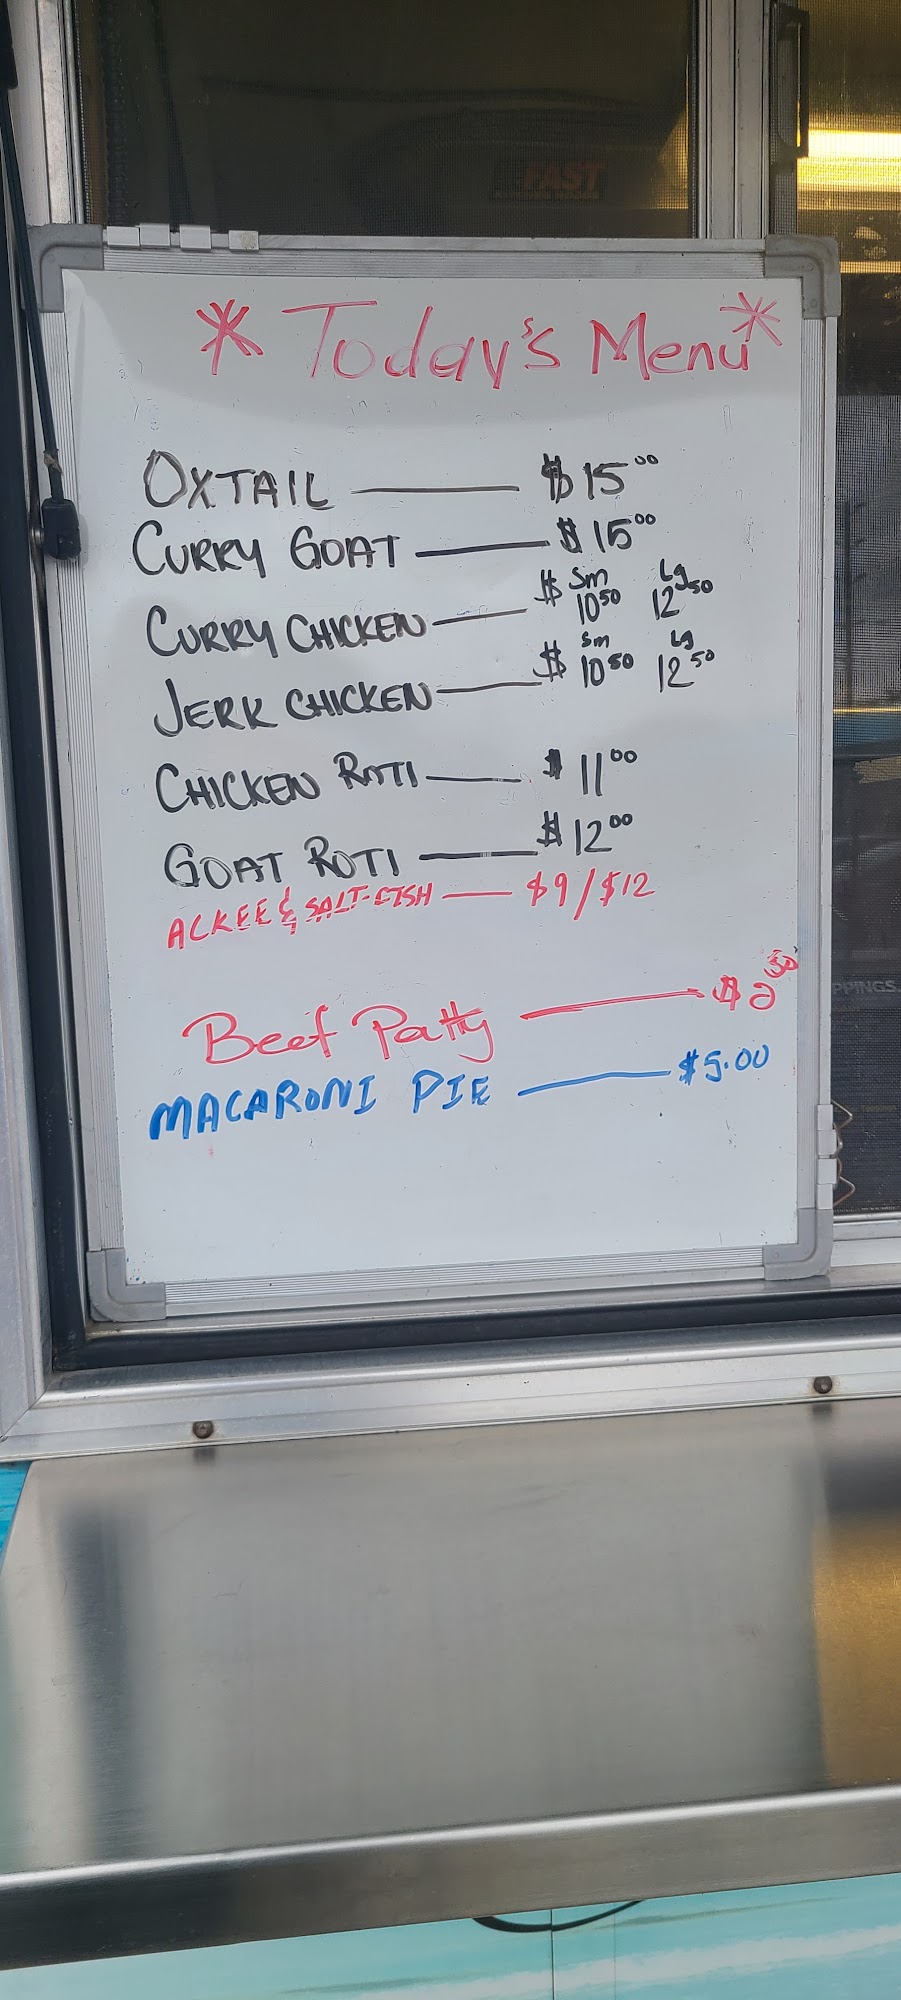 FAST
* Today's Menu *
OXTAIL — $15.00
CURRY GOAT — $15.00
CURRY CHICKEN — $ Sm 10.50 Lg 12.50
JERK CHICKEN — $ Sm 10.50 Lg 12.50
CHICKEN ROTI — $11.00
GOAT ROTI — $12.00
ACKEE & SALT-FISH — $9/$12
Beef Patty — $2.50
MACARONI PIE — $5.00